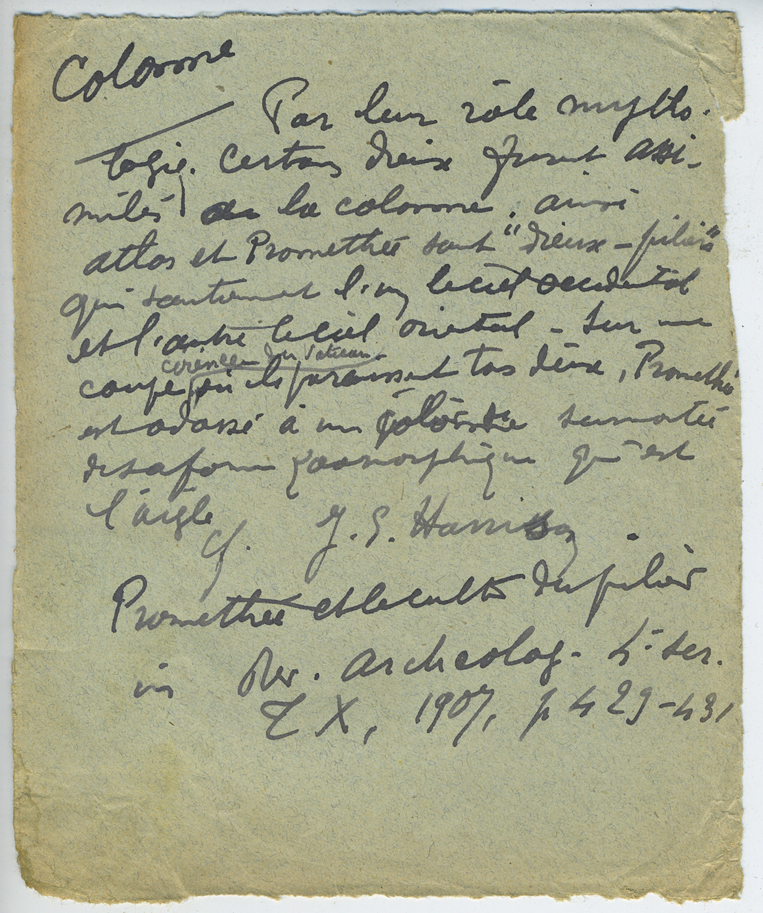 Colonne
Par leur rôle mytho-
logiq. certains dieux furent assi-
milés à la colonne, ainsi
Atlas et Promethée sont "dieux-piliers"
qui soutiennent l'un le ciel occidental
et l'autre le ciel oriental - Sur une
cyrénéenne du Vatican
coupe où ils paraissent tos deux, Promethée
est adossé à un colonne surmontée
de sa forme zoomorphique qu'est
l'aigle
cf. J. E. Harrison
Promethée et le culte du pilier
in Rev. Archeolog. 4e ser.
T X, 1907, p 429-431